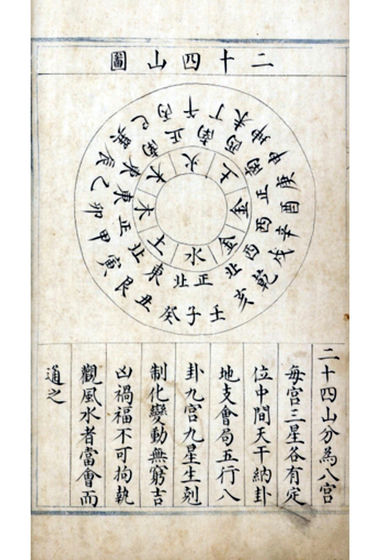 二十四山圖
壬子癸丑艮寅甲卯乙辰巽巳丙午丁未坤申庚酉辛戌乾亥
正北
東北
正東
東南
正南
西南
正西
西北
水
土
木
木
火
土
金
金
二十四山分為八宮
每宮三星各有定
位中間天干納卦
地支會局五行八
卦九宮九星生剋
制化變動無窮吉
凶禍福不可拘執
觀風水者當會而
通之